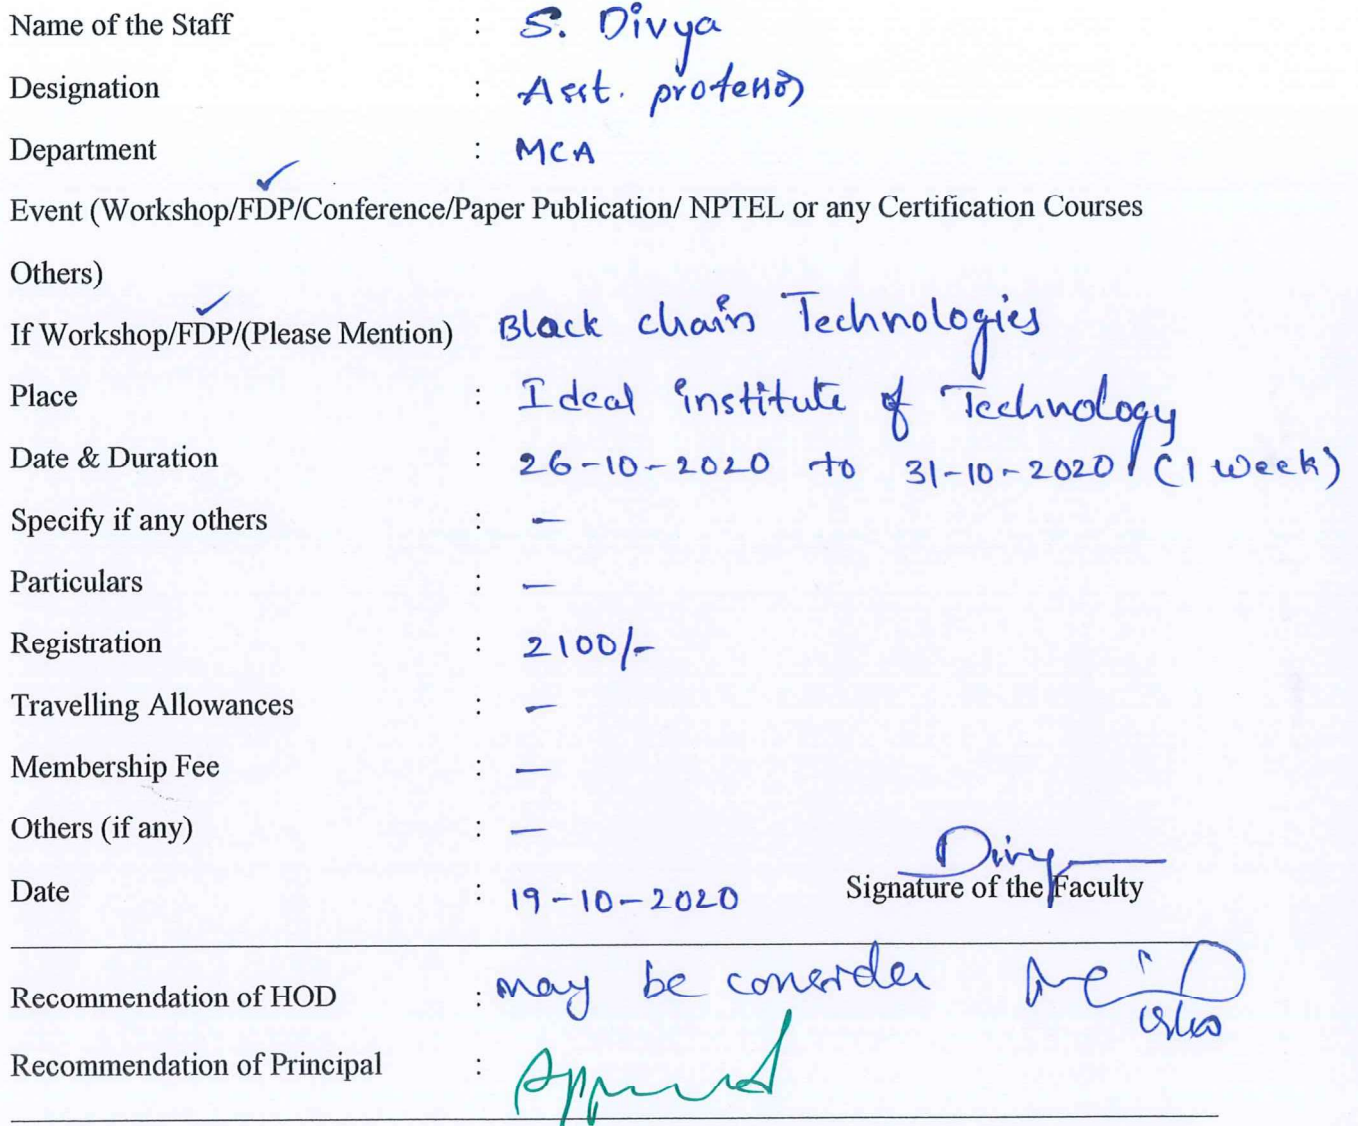 Name of the Staff : S. Divya
Designation : Asst. professor
Department : MCA
Event (Workshop/FDP/Conference/Paper Publication/ NPTEL or any Certification Courses
Others)
If Workshop/FDP/(Please Mention) Block chain Technologies
Place : Ideal institute of Technology
Date & Duration : 26-10-2020 to 31-10-2020 (1 week)
Specify if any others : -
Particulars : -
Registration : 2100/-
Travelling Allowances : -
Membership Fee : -
Others (if any) : -
Divya
Date : 19-10-2020 Signature of the Faculty
Recommendation of HOD : may be consider
Recommendation of Principal : Approved